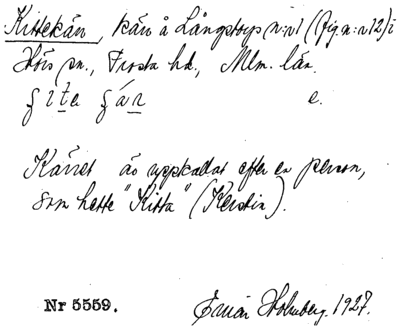 Kittekärr, kärr å Långstorps n:r 1 (fig. n:r 12) i
Hörs sn., Frosta hd., Mlm. län.
e.
Kärret är uppkallat efter en person,
som hette "Kitta" (Kerstin).
Nr 5559.
Einar Holmberg. 1927.